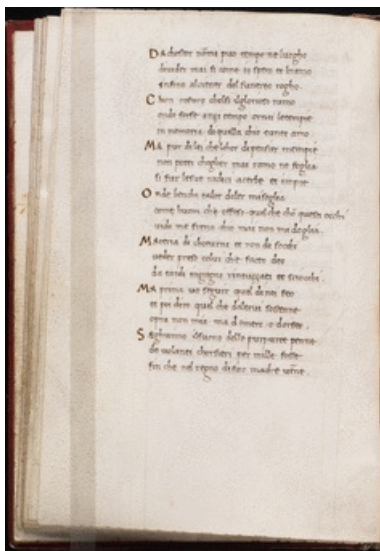 Da chostor non mi puo tempo ne luogho
divider mai si come io spero et bramo
infino alcener del funereo rogho.
Chon costor cholsi ilglorioso ramo
onde forse anzi tempo ornai letempie
in memoria diquella chio tanto amo.
Ma pur dilei chelchor dipensier mempie
non potei choglier mai ramo ne foglia
si fur lesue radici acerbe et empie.
Onde benche talor doler misoglia
come huom che offeso quel che chon questi occhi
vidi me freno che mai non ma doglia.
Materia di choturni et non da socchi
veder preso colui che facto deo
da tardi ingegni rintuzzati et sciocchi.
Ma prima vo seguir quel di noi feo
et poi diro quel che daltrui sostenne
opra non mia ma domero o dorfeo.
Seghuimo ilsuono delle purpuree penne
de volanti chorsieri per mille fosse
fin che nel regno disua madre venne.